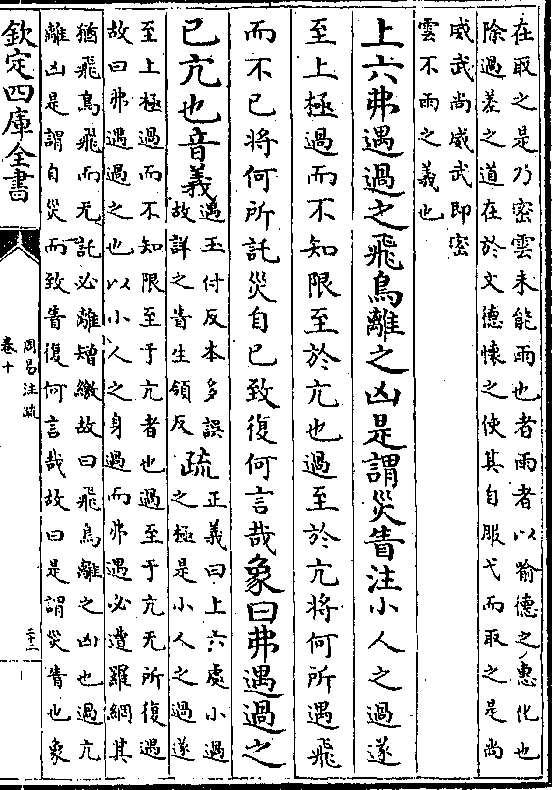 在取之是乃密雲未能雨也者雨者以喻德之惠化也
除過差之道在於文德懷之使其自服弋而取之是尚
威武尚威武即密
雲不雨之義也
上六弗遇過之飛鳥離之凶是謂災眚注小人之過遂
至上極過而不知限至於亢也過至於亢將何所遇飛
而不已將何所託災自已致復何言哉象曰弗遇過之
已亢也音義遇玉付反本多誤
故詳之眚生領反疏正義曰上六處小過
之極是小人之過遂
至上極過而不知限至于亢者也過至于亢无所復遇
故曰弗遇過之也以小人之身過而弗遇必遭羅網其
猶飛鳥飛而无託必離矰繳故曰飛鳥離之凶也過亢
離凶是謂自災而致眚復何言哉故曰是謂災眚也象
欽定四庫全書
周易注疏
卷十
三十二